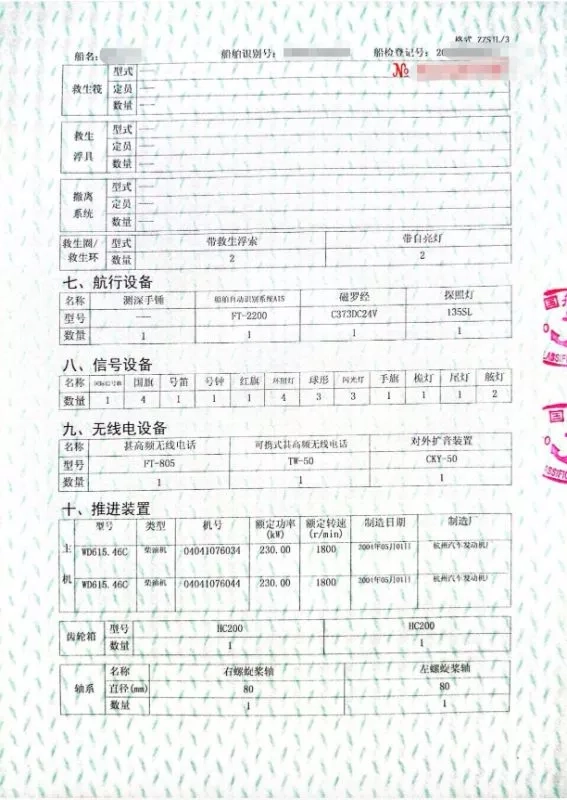 格式 ZZSJL/3
船名：
船舶识别号：
船检登记号：20
№
救生筏
型式 ——
定员 ——
数量 ——
救生浮具
型式 ——
定员 ——
数量 ——
撤离系统
型式 ——
定员 ——
数量 ——
救生圈/救生环
型式 带救生浮索 带自亮灯
数量 2 2
七、航行设备
名称 测深手锤 船舶自动识别系统AIS 磁罗经 探照灯
型号 —— FT-2200 C373DC24V 135SL
数量 1 1 1 1
八、信号设备
名称 国旗 号笛 号钟 红旗 环照灯 球形 闪光灯 手旗 桅灯 尾灯 舷灯
数量 1 4 1 1 1 4 3 3 1 1 1 2
九、无线电设备
名称 甚高频无线电话 可携式甚高频无线电话 对外扩音装置
型号 FT-805 TW-50 CKY-50
数量 1 1 1
十、推进装置
主机
型号 类型 机号 额定功率(kW) 额定转速(r/min) 制造日期 制造厂
WD615.46C 柴油机 04041076034 230.00 1800 2001年05月01日 杭州汽车发动机厂
WD615.46C 柴油机 04041076044 230.00 1800 2001年05月01日 杭州汽车发动机厂
齿轮箱
型号 HC200 HC200
数量 1 1
轴系
名称 右螺旋桨轴 左螺旋桨轴
直径(mm) 80 80
数量 1 1